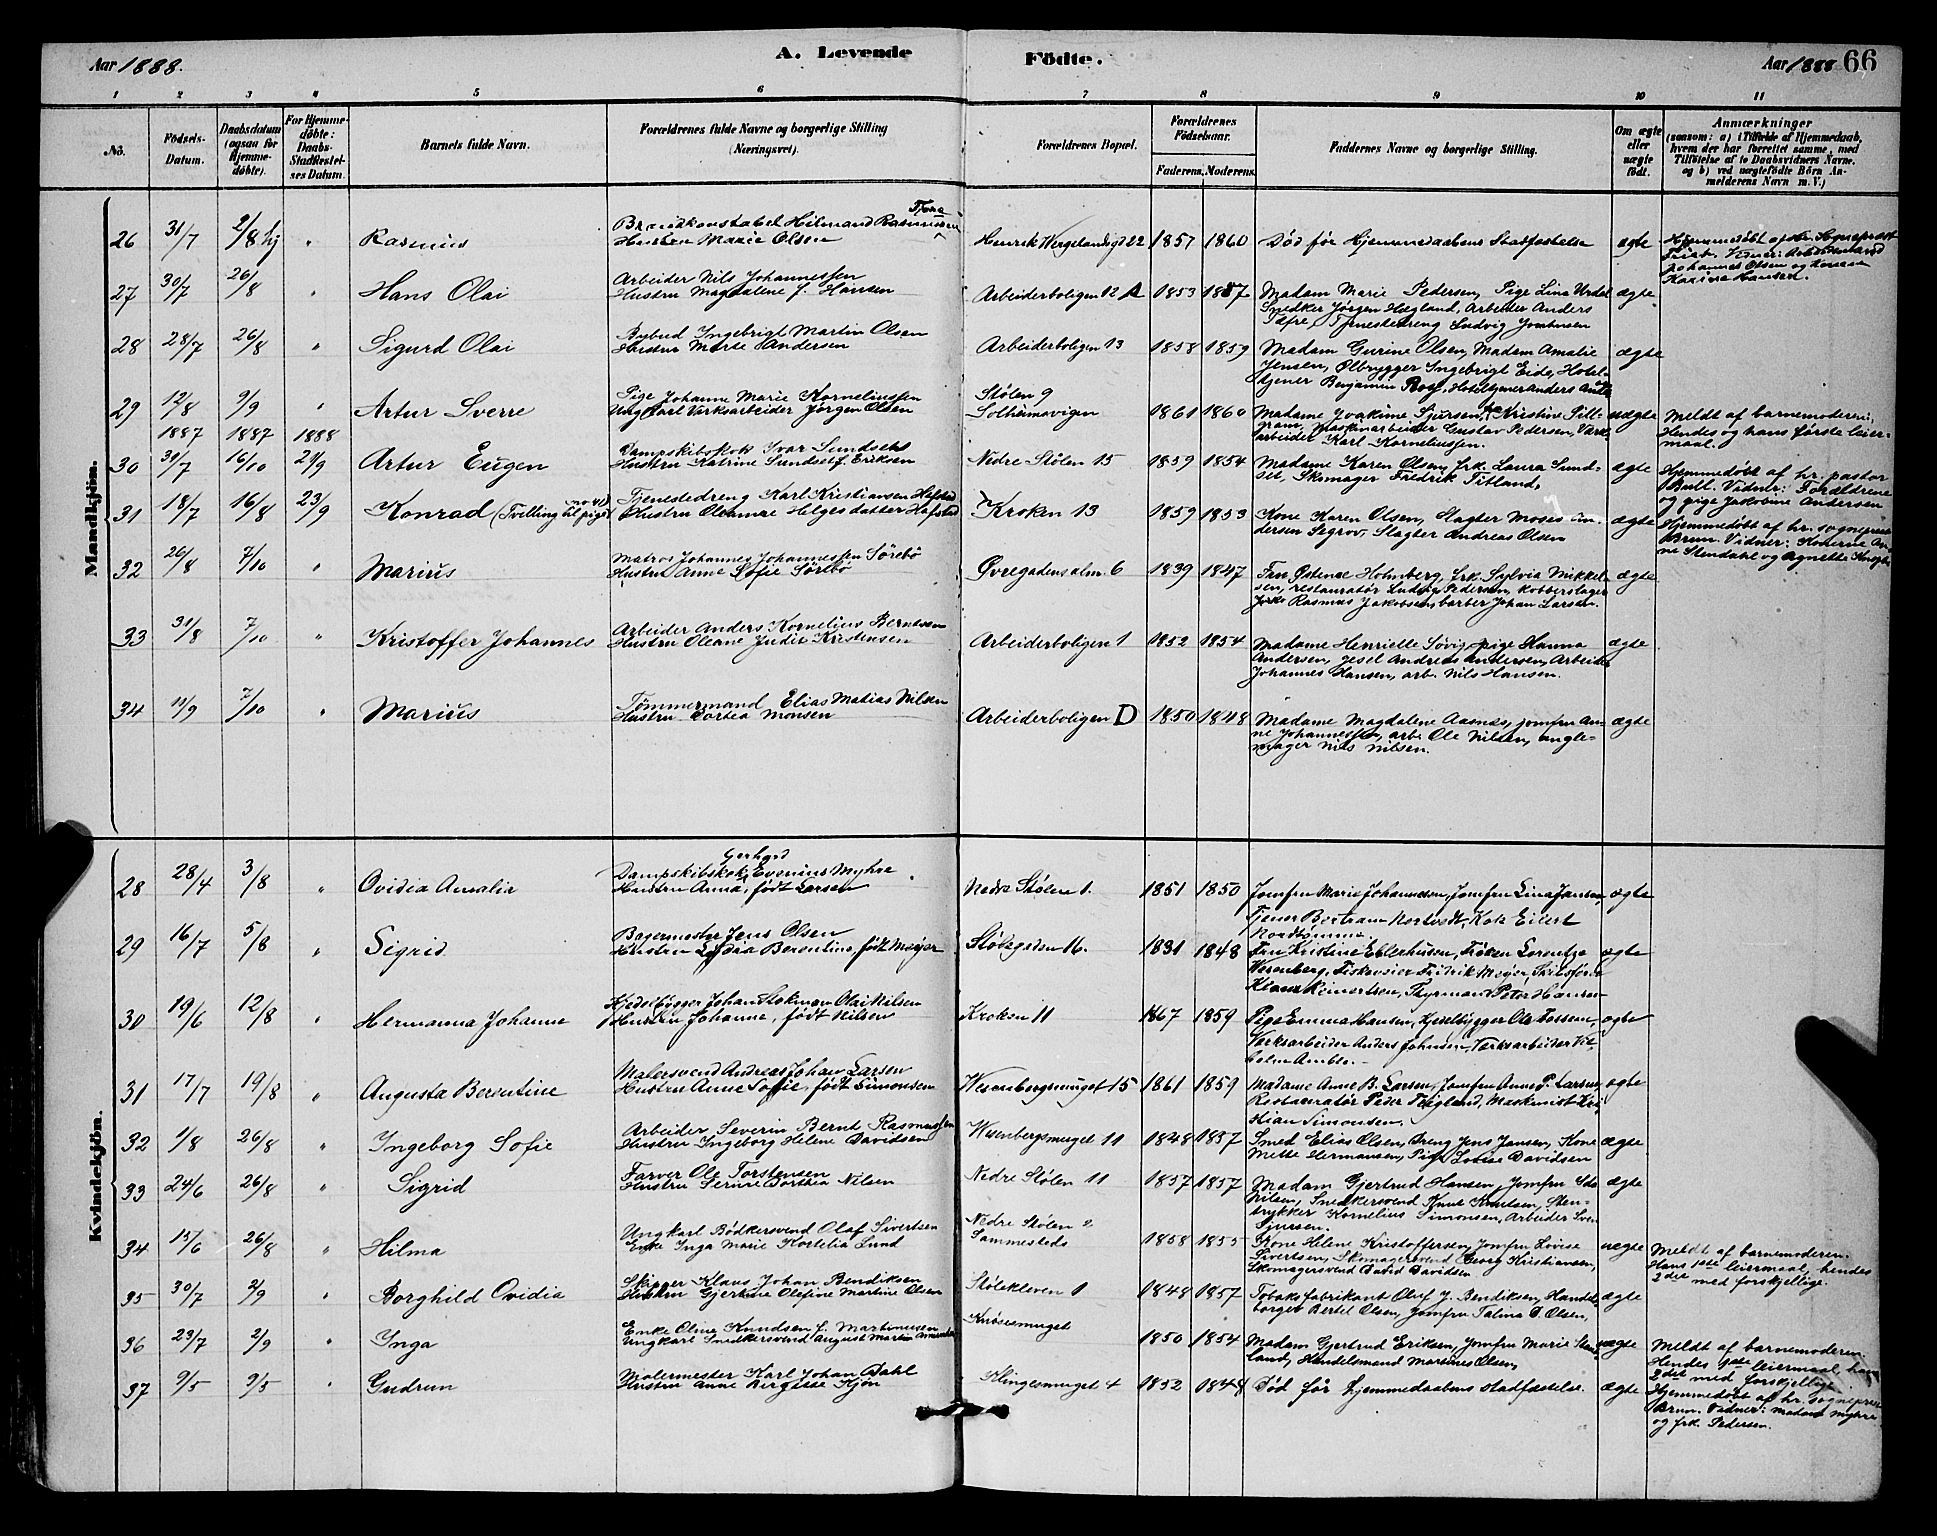 Aar 1888.
A. Levende Födte.
Aar 1888 66
1 2 3 4 5 6 7 8 9 10 11
No.
Födsels-Datum.
Daabsdatum (ogsaa for Hjemme-döbte).
For Hjemme-döbte: Daabs-Stadfæstel-ses Datum.
Barnets fulde Navn.
Forældrenes fulde Navne og borgerlige Stilling (Næringsvei).
Forældrenes Bopæl.
Forældrenes Födselsaar.
Faderens. Moderens.
Faddernes Navne og borgerlige Stilling.
Om ægte eller uægte födt.
Anmærkninger
(saasom: a) i Tilfælde af Hjemmedaab, hvem der har forrettet samme, med Tilföielse af to Daabsvidners Navne. og b) ved uægtefödte Börn Anmelderens Navn m. V.)
Mandkjön.
26 31/7 2/8 hj " Rasmus
Brandkonstabel Hilmand Rasmussen Tjore
Hustru Marie Olsen
Henrik Wergelandsgd 22 1857 1860 Död före Hjemmedaabens Stadfæstelse ægte
Hjemmedöbt af hr. Sogneprest
Vidner:
Johannes Olsen og Konen
Karina Hansen.
27 30/7 26/8 " Hans Olai
Arbeider Nils Johannessen
Hustru Magdalene f. Hansen
Arbeiderboligen 12 A 1853 1857 Madam Marie Pedersen, Pige Lina Urdal ægte
Snedker Jørgen Hægland, Arbeider Anders
Tjenestedreng Ludvig
28 28/7 26/8 " Sigurd Olai
Bybud Ingebrigt Martin Olsen
Hustru Marte Andersen
Arbeiderboligen 13 1858 1859 Madam Gurine Olsen, Madam Amalie ægte
Jensen, Ølbrygger Ingebrigt Eide, Hotel-
tjener Benjamin Roy, Hoteltjener Anders
29 12/8 9/9 " Artur Sverre
Pige Johanne Marie Korneliussen
Ungkarl Værksarbeider Jörgen Olsen
Stölen 9
Solhimsvigen 1861 1860 Madame Joakime Sjursen, Kristine Pill- uægte
gram, Maskinarbeider Gustav Pedersen, Værk
arbeider Karl Korneliussen.
Meldt af barnemoderen;
Hendes og hans förste leier-
maal.
1887 1887 1888
30 30/7 16/10 21/9 Artur Eugen
Dampskibskok Ivar Sundseth
Hustru Katrine Sundset f. Eriksen
Nedre Stölen 15 1859 1854 Madame Karen Olsen, frk. Laura Sund- ægte
set, Skomager Fredrik Titland,
Hjemmedöbt af hr. pastor
Bull. Vidner: Forældrene
og pige Jakobine Andersen
31 18/7 16/8 23/9 Konrad (Tvilling til pige no 41)
Tjenestedreng Karl Kristiansen Hafstad
Hustru Oleanna Helgesdatter Hafstad
Kroken 13 1859 1853 Kone Karen Olsen, Slagter Moses An- ægte
dersen Segrov, Slagter Andreas Olsen
Hjemmedöbt af hr. sogneprest
Brun. Vidner: Konerne An-
ne Stendahl og Agnethe
32 26/8 7/10 " Marius
Matros Johannes Johannessen Sörebö
Hustru Anne Sofie Sörebö
Øvregadens alm. 6 1839 1847 Fru Østense Holmberg, frk. Sylvia Mikkel- ægte
sen, restauratør Ludvig Pedersen, kobberslager
Rasmus Jakobsen, barber Johan Larsen.
33 31/8 7/10 " Kristoffer Johannes
Arbeider Anders Kornelius Berntsen
Hustru Oleane Judit Kristensen
Arbeiderboligen 1 1852 1854 Madame Henriette Sövig, pige Hanna ægte
Andersen, gesel Andreas Andersen, Arbeider
Johannes Hansen, arb. Nils Hansen.
34 11/9 7/10 " Marius
Tömmermand Elias Matias Nilsen
Hustru Dortea Monsen
Arbeiderboligen D 1850 1848 Madame Magdalene Aasnes, jomfru An- ægte
ne Johannessen, arb. Ole Nilsen, angle-
mager Nils Nilsen.
Kvindekjön.
28 28/4 3/8 " Ovidia Amalie
Dampskibskok Gerhard Evenius Myhre
Hustru Anna, födt Larsen
Nedre Stölen 1. 1851 1850 Jomfru Marie Johannesen, Jomfru Lina Jansen, ægte
Tjener Bertram Nortvedt, Kok Eilert
29 16/7 5/8 " Sigrid
Bagermester Jens Olsen
Hustru Lydia Berentine födt Meyer
Stölegaden 16. 1831 1848 Fru Kristine Ellerhusen, Fröken Lorentze ægte
Wesenberg, Fredrik Meyer
Reinertsen, Styrmand Peter Hansen
30 19/6 12/8 " Hermanna Johanne
Kjedelbygger Johan Stokman Olai Nilsen
Hustru Johanne, födt Nilsen
Kroken 11 1867 1859 Pige Emma Hansen, Kjedelbygger Ole Tossem, ægte
Værksarbeider Anders Johnsen, Værksarbeider Vil-
helm Amble.
31 17/7 19/8 " Augusta Berentine
Malersvend Andreas Johan Larsen
Hustru Anne Sofie, födt Simonsen
Wesenbergsmuget 15 1861 1859 Madame Anne B. Larsen, Jomfru Anne P. Larsen ægte
Restauratør Peder Teigland, Maskinist Kris-
tian Simonsen.
32 1/8 26/8 " Ingeborg Sofie
Arbeider Severin Bernt Rasmussen
Hustru Ingeborg Helene Davidsen
Wesenbergsmuget 11 1848 1857 Smed Elias Olsen, Dreng Jens Jansen, Kone ægte
Mette Hermansen, Pige Lovise Davidsen
33 24/6 26/8 " Sigrid
Farver Ole Torstensen
Hustru Serine Dorthea Nilsen
Nedre Stölen 11 1857 1857 Madam Gjertrud Hansen, Jomfru Ida ægte
Nilsen, Snedkersvend Knut Knutsen, Sten-
trykker Kornelius Simonsen, Arbeider Sven
Sjursen.
34 15/6 26/8 " Hilma
Ungkarl Bödkersvend Olaf Sivertsen
Enke Inga Marie Kortelia Lund
Nedre Stölen 2
Sammesteds 1858 1855 Kone Helene Kristoffersen, Jomfru Lovise uægte
Sivertsen, Skomagersvend Georg Kristiansen,
Skomagersvend David Davidsen
Meldt af barnemoderen.
Hans 1ste leiermaal, hendes
2det med forskjellige.
35 30/7 2/9 " Borghild Ovidia
Skipper Klaus Johan Bendiksen
Hustru Gjertine Olefine Martine Olsen
Stölekleven 1 1848 1857 Tobaksfabrikant Oluf J. Bendiksen, Handels- ægte
borger Bertel Olsen, Jomfru Talina D. Olsen,
36 23/7 2/9 " Inga
Enke Oline Knudsen f. Martinusen
Ungkarl Snedkersvend August Martin
Knösesmuget 1850 1854 Madam Gjertrud Eriksen, Jomfru Marie Sten- uægte
land, Handelsmand Martines Olsen,
Meldt af barnemoderen.
Hendes 1ste leiermaal, hans
2det med forskjellige.
37 9/5 9/5 " Gudrun
Malermester Karl Johan Dahl
Hustru Anne Birgitte Kjön
Klingesmuget 4 1852 1848 Död för hjemmedaabens stadfæstelse. ægte
Hjemmedöbt af hr. sogneprest
Brun. Vidner: madam Myhre
og frk. Pedersen.